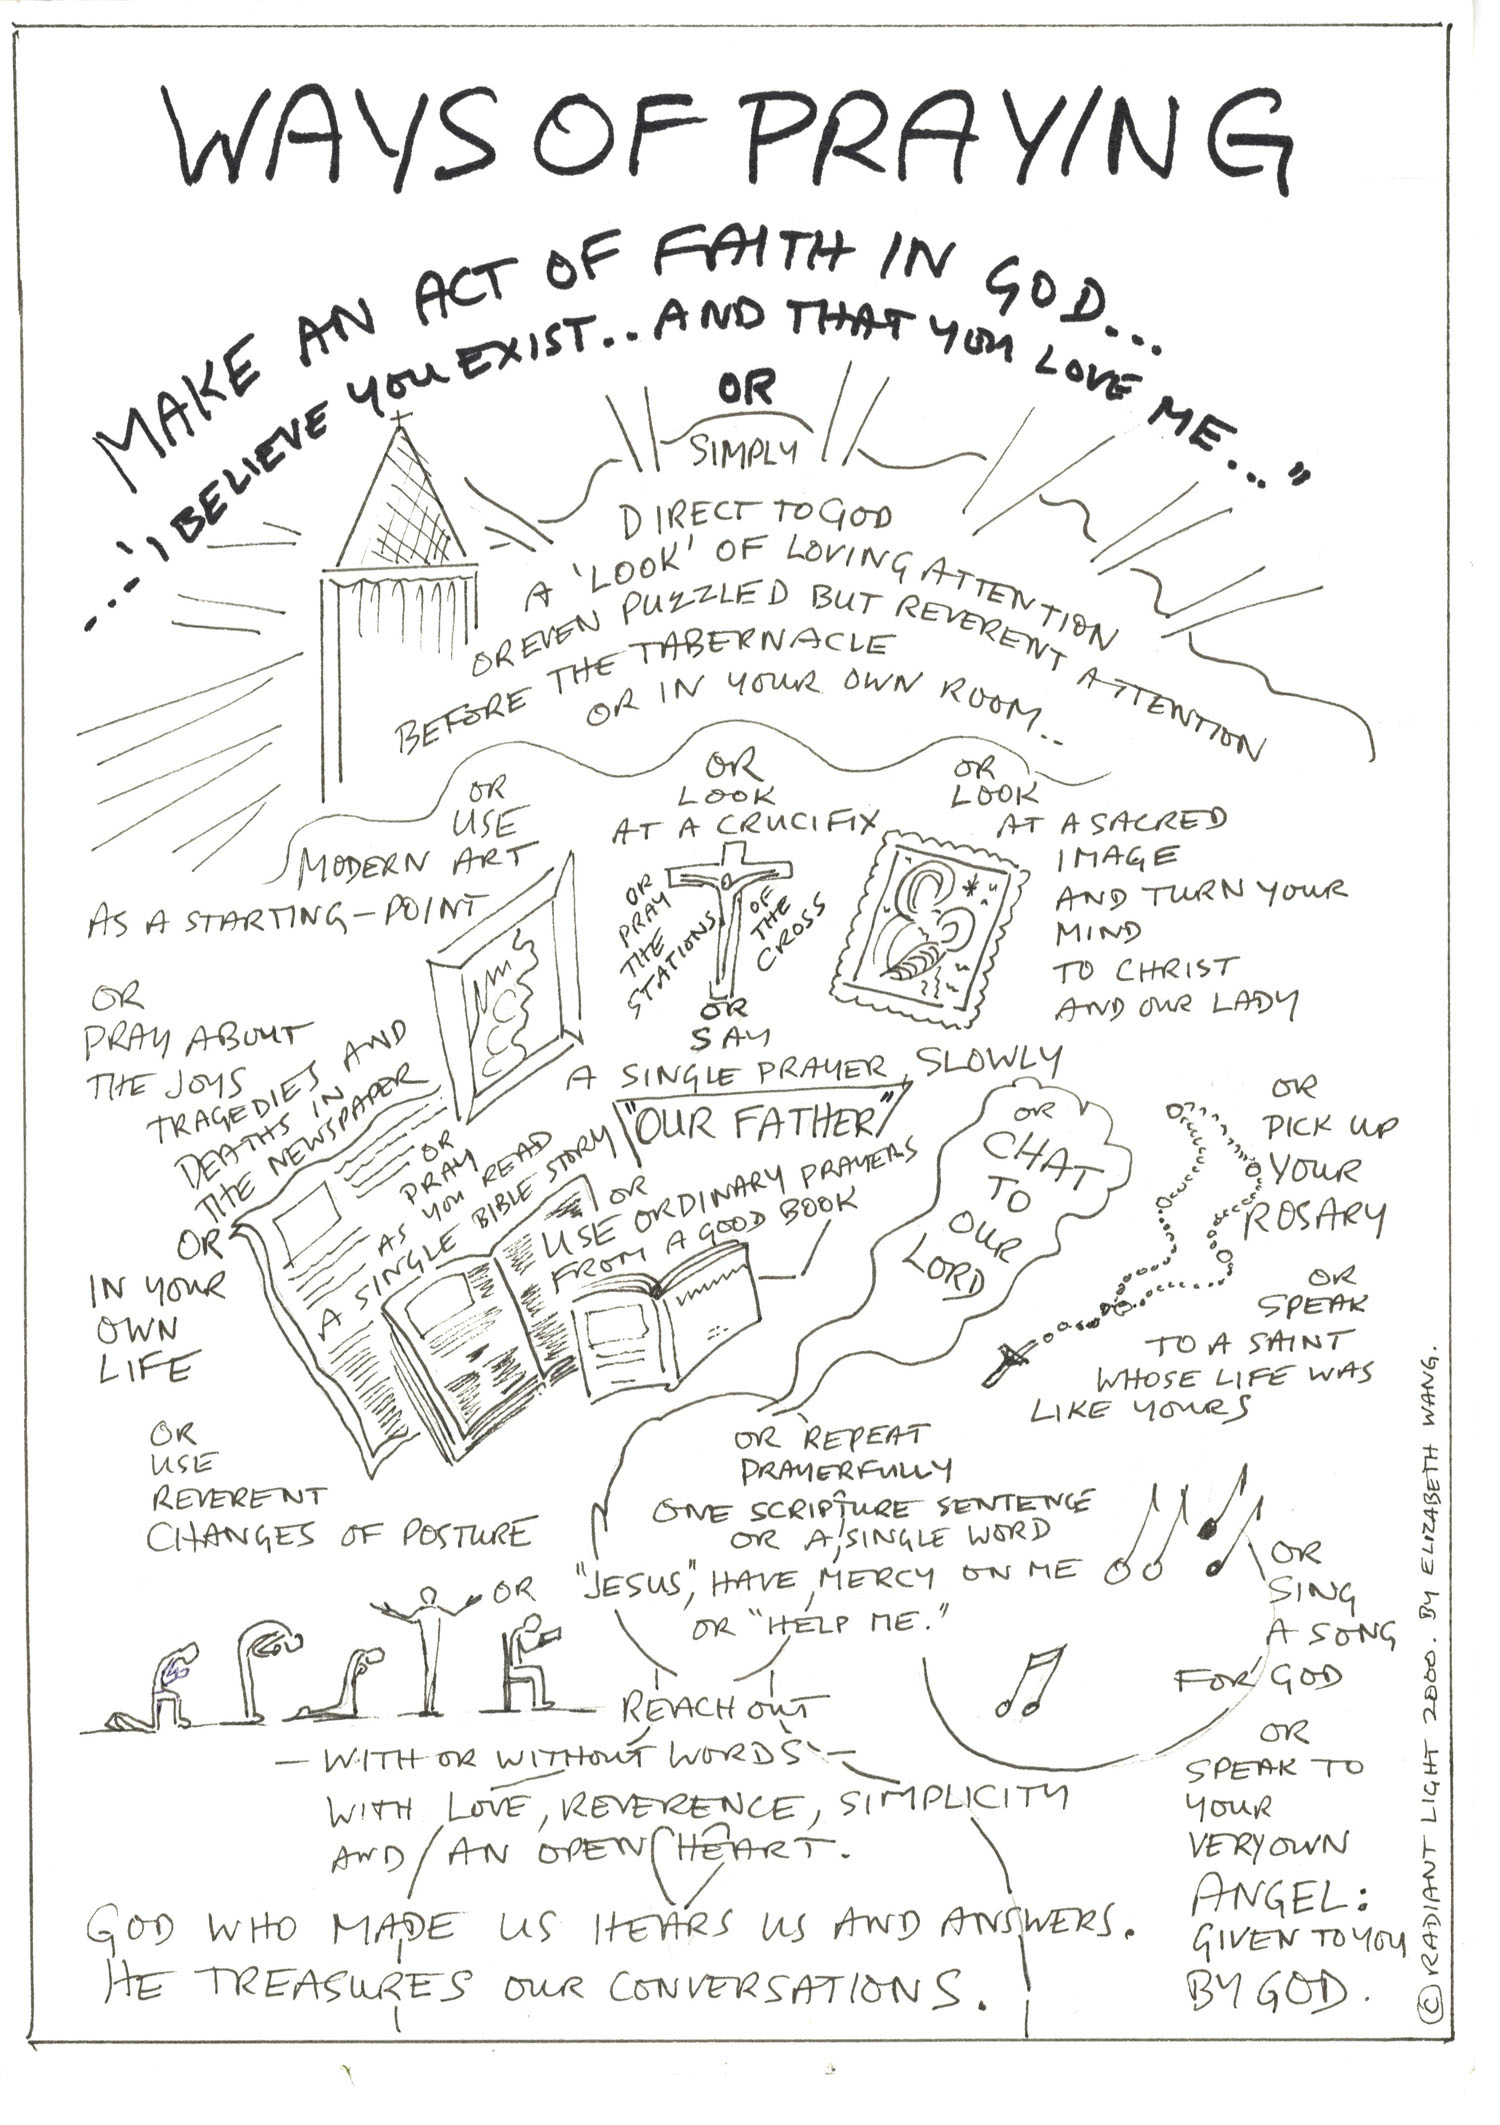 WAYS OF PRAYING
MAKE AN ACT OF FAITH IN GOD...
..."I BELIEVE YOU EXIST.. AND THAT YOU LOVE ME..."
OR
SIMPLY
DIRECT TO GOD
A 'LOOK' OF LOVING ATTENTION
OR EVEN PUZZLED BUT REVERENT ATTENTION
BEFORE THE TABERNACLE
OR IN YOUR OWN ROOM..
OR
USE
MODERN ART
AS A STARTING-POINT
OR
LOOK
AT A CRUCIFIX
OR
PRAY
THE
STATIONS
OF
THE
CROSS
OR
LOOK
AT A SACRED
IMAGE
AND TURN YOUR
MIND
TO CHRIST
AND OUR LADY
OR
PRAY ABOUT
THE JOYS
TRAGEDIES AND
DEATHS IN
THE NEWSPAPER
OR
IN YOUR
OWN
LIFE
OR
SAY
A SINGLE PRAYER, SLOWLY
"OUR FATHER"
OR
PRAY
AS YOU READ
A SINGLE BIBLE STORY
OR
USE ORDINARY PRAYERS
FROM A GOOD BOOK
OR
CHAT
TO
OUR
LORD
OR
PICK UP
YOUR
ROSARY
OR
SPEAK
TO A SAINT
WHOSE LIFE WAS
LIKE YOURS
OR
USE
REVERENT
CHANGES OF POSTURE
OR
OR REPEAT
PRAYERFULLY
ONE SCRIPTURE SENTENCE
OR A SINGLE WORD
"JESUS", HAVE MERCY ON ME
OR "HELP ME."
OR
SING
A SONG
FOR GOD
REACH OUT
- WITH OR WITHOUT WORDS -
WITH LOVE, REVERENCE, SIMPLICITY
AND AN OPEN HEART.
OR
SPEAK TO
YOUR
VERY OWN
ANGEL:
GIVEN TO YOU
BY GOD.
GOD WHO MADE US HEARS US AND ANSWERS.
HE TREASURES OUR CONVERSATIONS.
© RADIANT LIGHT 2000. BY ELIZABETH WANG.